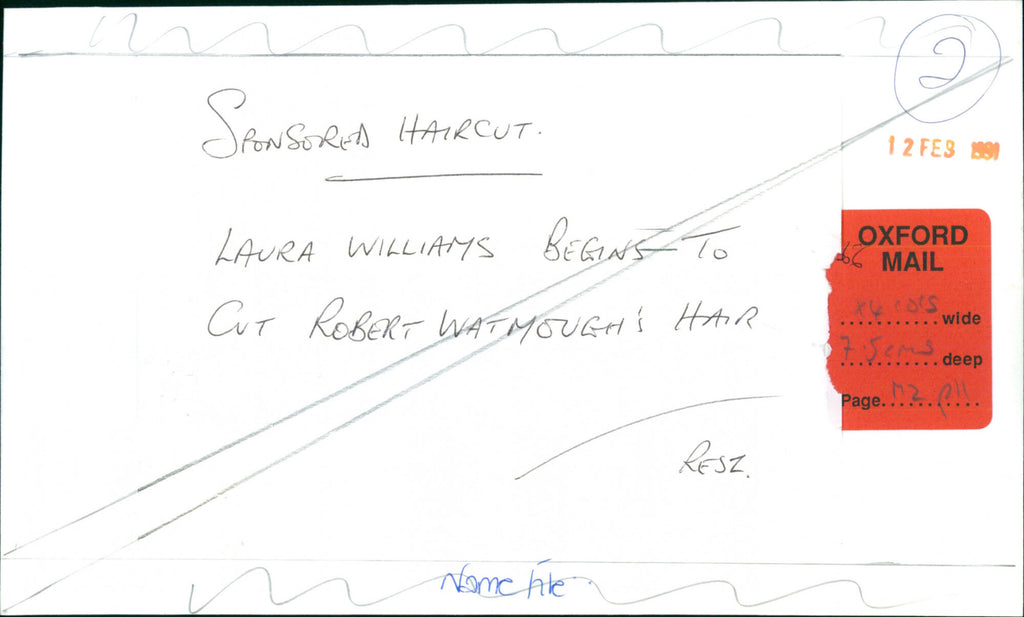 2
12 FEB 1991
SPONSORED HAIRCUT.
LAURA WILLIAMS BEGINS TO
CUT ROBERT WATMOUGH'S HAIR
OXFORD
MAIL
x4 cols wide
7.5cms deep
Page. M2 p11
Name file.